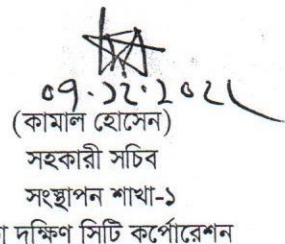 ০৭.১২.২০২১
(কামাল হোসেন)
সহকারী সচিব
সংস্থাপন শাখা-১
দক্ষিণ সিটি কর্পোরেশন